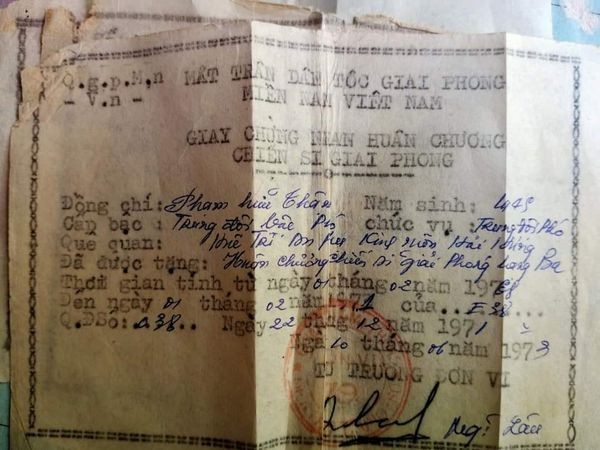 Q.g.p.M.n MẶT TRẬN DÂN TỘC GIAI PHONG
- V.n - MIỀN NAM VIỆT NAM
GIAY CHỨNG NHẬN HUÂN CHƯƠNG
CHIẾN SĨ GIAI PHONG
Đồng chí: Phạm Hữu Thận Năm sinh:
Cấp bậc: Trung đội bậc Phó chức vụ: Trung đội Phó
Que quan: Hải Phòng
Đã được tặng: Huân chương chiến sĩ giải Phong hạng Ba
Thời gian tính từ ngày 01 tháng 02 năm 1968
Đen ngày 01 tháng 02 năm 1971 của.. E38...
Q.ĐSố: a38.. Ngày 22 thág 12 năm 1971
Ngà 10 tháng 06 năm 1973
TƯ TRƯỞNG ĐƠN VỊ